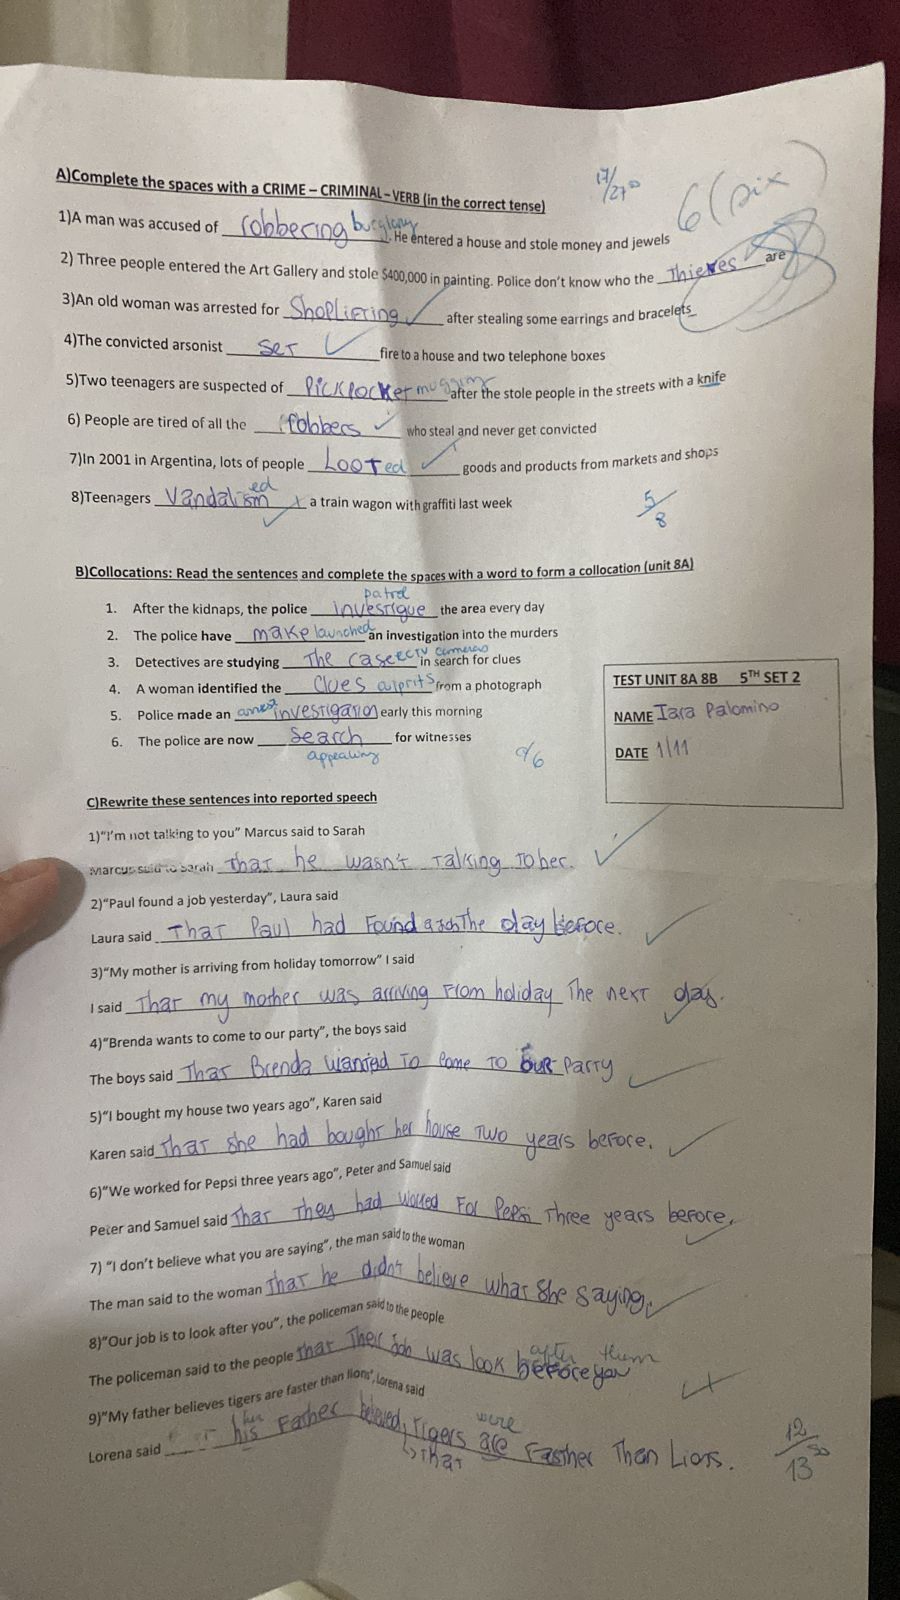 A)Complete the spaces with a CRIME – CRIMINAL – VERB (in the correct tense)
17/27⁵⁰
6 (six)
1)A man was accused of robbering burglary. He entered a house and stole money and jewels
2) Three people entered the Art Gallery and stole $400,000 in painting. Police don't know who the Thieves are
3)An old woman was arrested for Shoplifting after stealing some earrings and bracelets
4)The convicted arsonist set fire to a house and two telephone boxes
5)Two teenagers are suspected of Pickpocket mugging after the stole people in the streets with a knife
6) People are tired of all the robbers who steal and never get convicted
7)In 2001 in Argentina, lots of people Looted goods and products from markets and shops
8)Teenagers Vandalism ed a train wagon with graffiti last week
5/8
B)Collocations: Read the sentences and complete the spaces with a word to form a collocation (unit 8A)
patrol
1. After the kidnaps, the police investigue the area every day
2. The police have make launched an investigation into the murders
3. Detectives are studying The case CCTV cameras in search for clues
4. A woman identified the Clues culprits from a photograph
5. Police made an arrest investigation early this morning
6. The police are now Search for witnesses
appealing
0/6
TEST UNIT 8A 8B 5TH SET 2
NAME Iara Palomino
DATE 1/11
C)Rewrite these sentences into reported speech
1)"I'm not talking to you" Marcus said to Sarah
Marcus said to Sarah that he wasn't talking to her.
2)"Paul found a job yesterday", Laura said
Laura said That Paul had found a job The day before.
3)"My mother is arriving from holiday tomorrow" I said
I said That my mother was arriving from holiday The next day.
4)"Brenda wants to come to our party", the boys said
The boys said That Brenda wanted To come To our Party
5)"I bought my house two years ago", Karen said
Karen said That she had bought her house Two years before.
6)"We worked for Pepsi three years ago", Peter and Samuel said
Peter and Samuel said That They had worked For Pepsi Three years before.
7) "I don't believe what you are saying", the man said to the woman
The man said to the woman That he didn't believe what She saying.
8)"Our job is to look after you", the policeman said to the people
after them
The policeman said to the people that Their job was look before you
9)"My father believes tigers are faster than lions", Lorena said
her were
Lorena said his Father believed, Tigers are Fasther Than Lions.
That
12⁵⁰/13